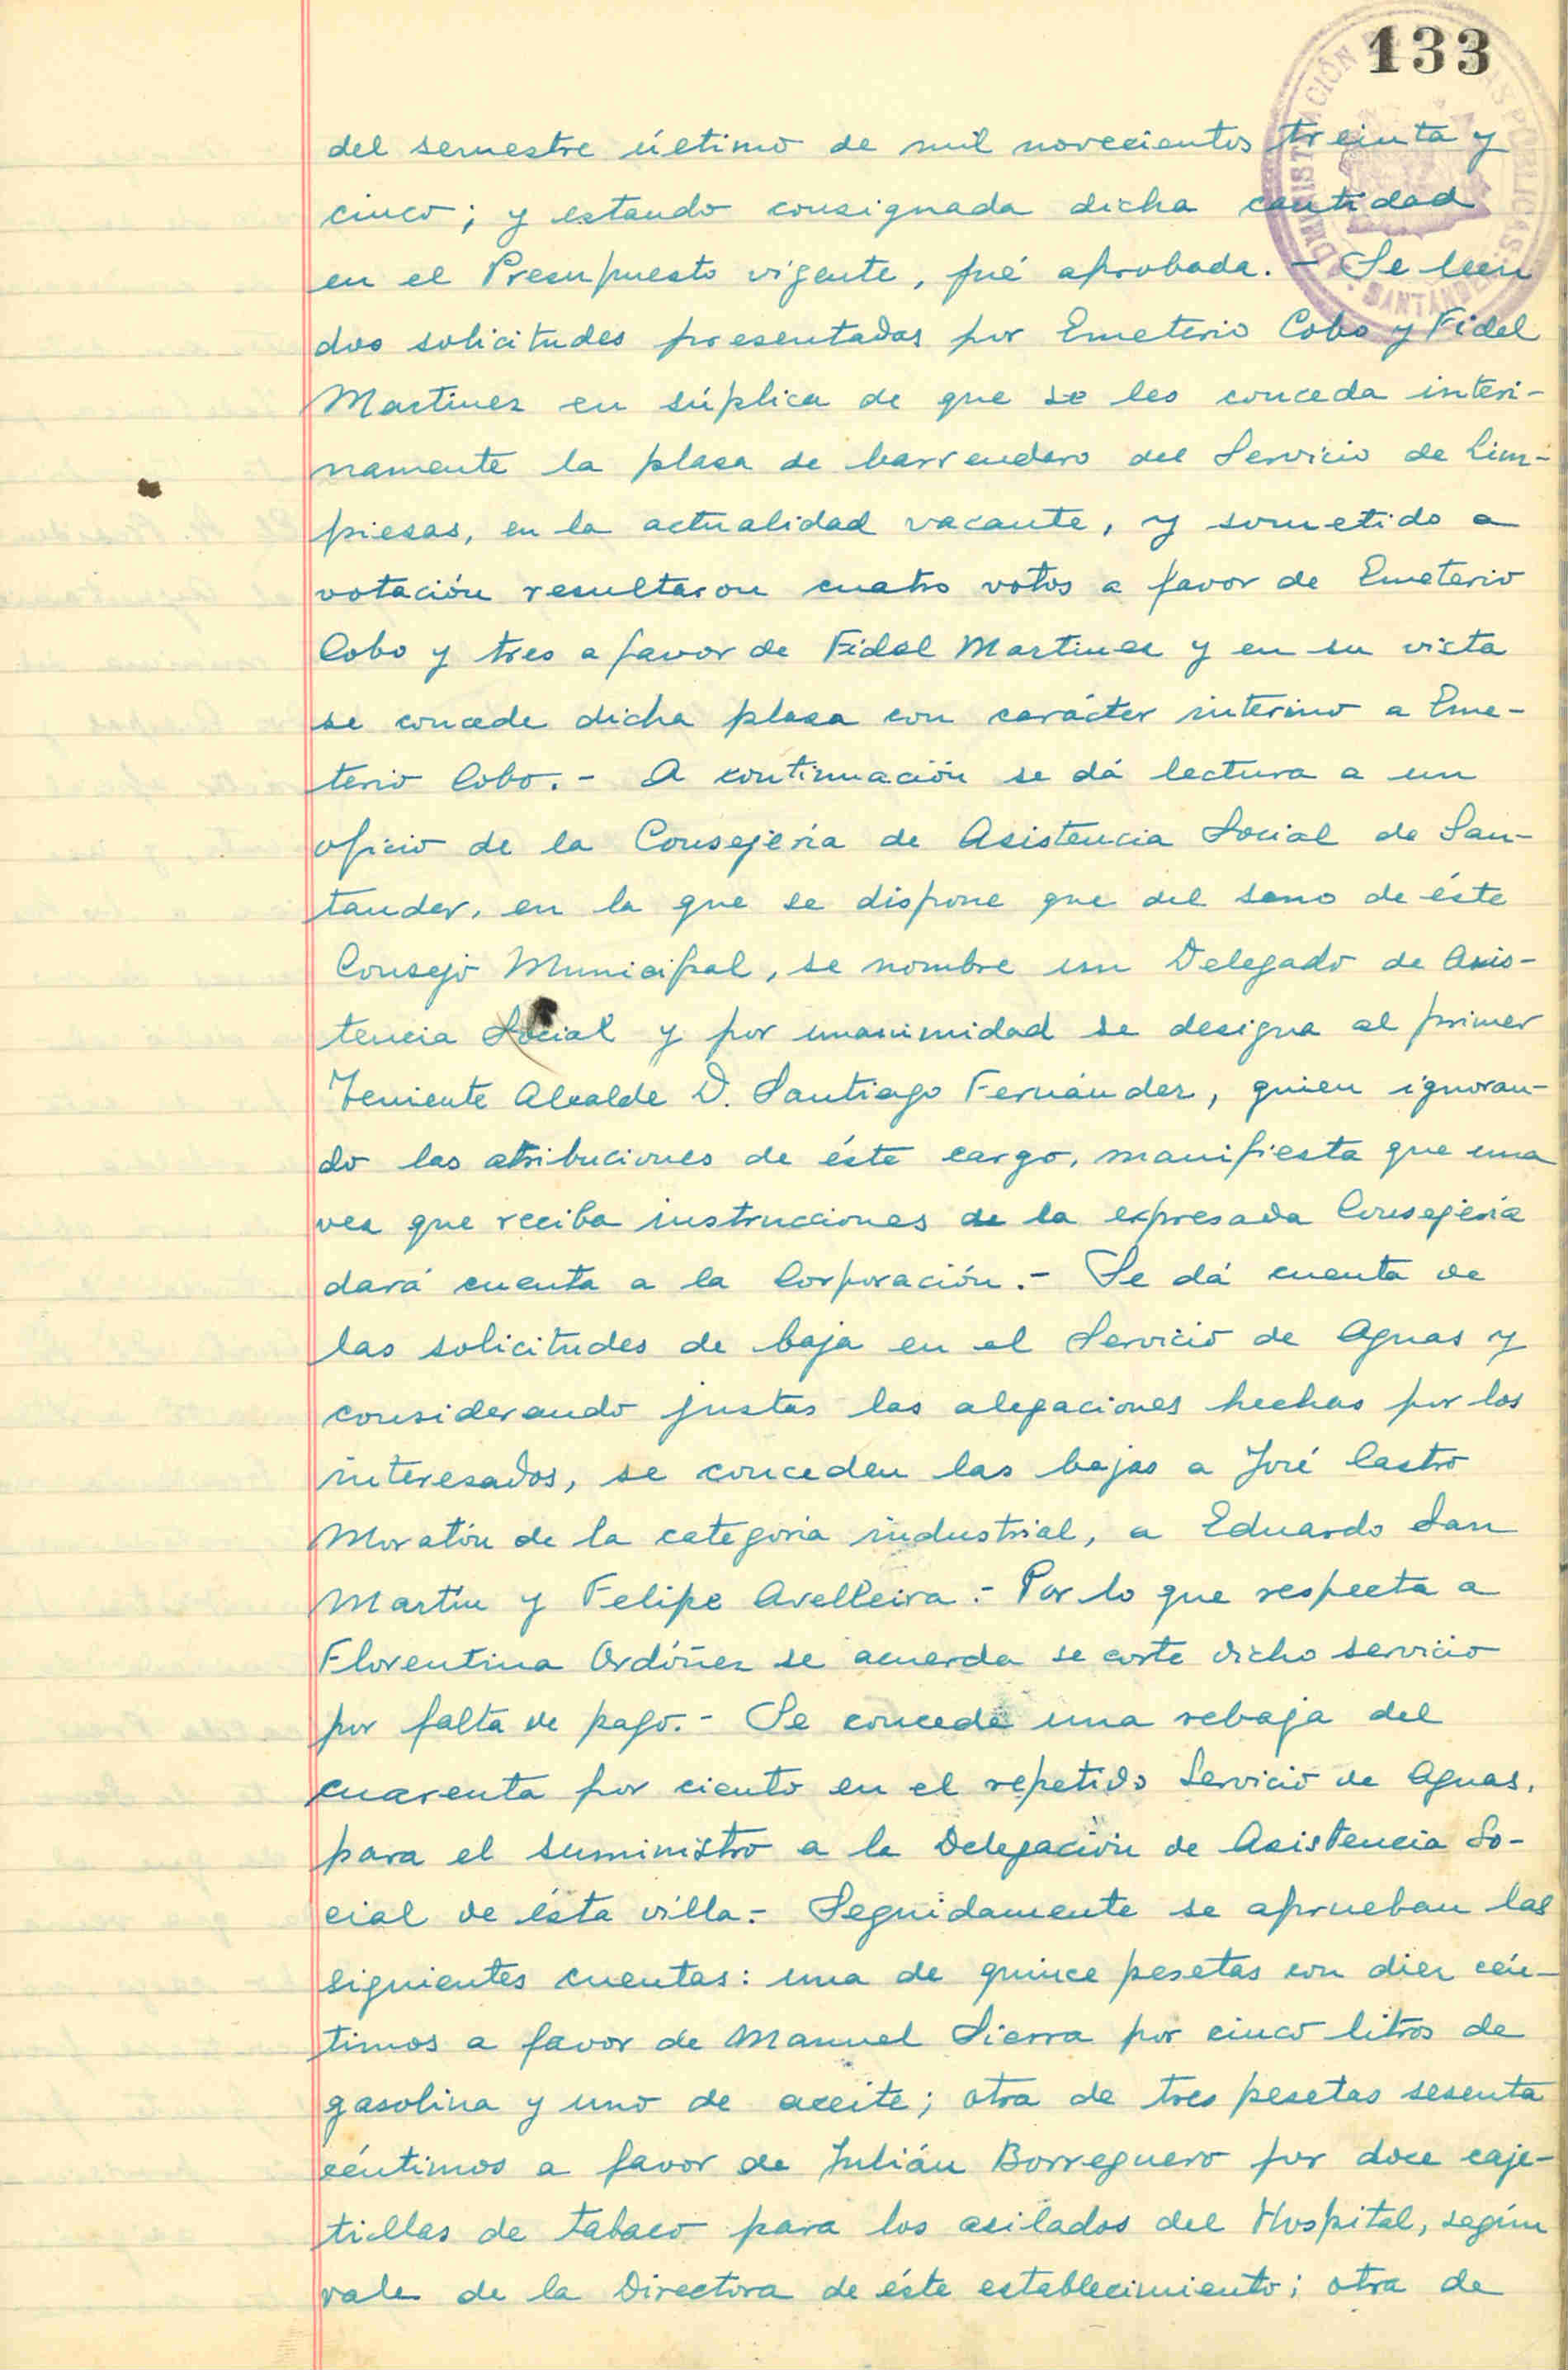 133
del semestre último de mil novecientos treinta y
cinco; y estando consignada dicha cantidad
en el Presupuesto vigente, fué aprobada. - Se leen
dos solicitudes presentadas por Emeterio Cobo y Fidel
Martinez en súplica de que se les conceda interi-
namente la plaza de barrendero del Servicio de Lim-
piezas, en la actualidad vacante, y sometido a
votación resultaron cuatro votos a favor de Emeterio
Cobo y tres a favor de Fidel Martinez y en su vista
se concede dicha plaza con carácter interino a Eme-
terio Cobo. - A continuación se dá lectura a un
oficio de la Consejería de Asistencia Social de San-
tander, en la que se dispone que del seno de éste
Consejo Municipal, se nombre un Delegado de Asis-
tencia Social y por unanimidad se designa al primer
Teniente Alcalde D. Santiago Fernández, quien ignoran-
do las atribuciones de éste cargo, manifiesta que una
vez que reciba instrucciones de la expresada Consejería
dará cuenta a la Corporación. - Se dá cuenta de
las solicitudes de baja en el Servicio de Aguas y
considerando justas las alegaciones hechas por los
interesados, se conceden las bajas a José Castro
Moratón de la categoría industrial, a Eduardo San
Martín y Felipe Avelleira. - Por lo que respecta a
Florentina Ordóñez se acuerda se corte dicho servicio
por falta de pago. - Se concede una rebaja del
cuarenta por ciento en el repetido Servicio de Aguas,
para el suministro a la Delegación de Asistencia So-
cial de ésta villa. - Seguidamente se aprueban las
siguientes cuentas: una de quince pesetas con diez cén-
timos a favor de Manuel Sierra por cinco litros de
gasolina y uno de aceite; otra de tres pesetas sesenta
céntimos a favor de Julián Borreguero por doce caje-
tillas de tabaco para los asilados del Hospital, según
vale de la Directora de éste establecimiento; otra de